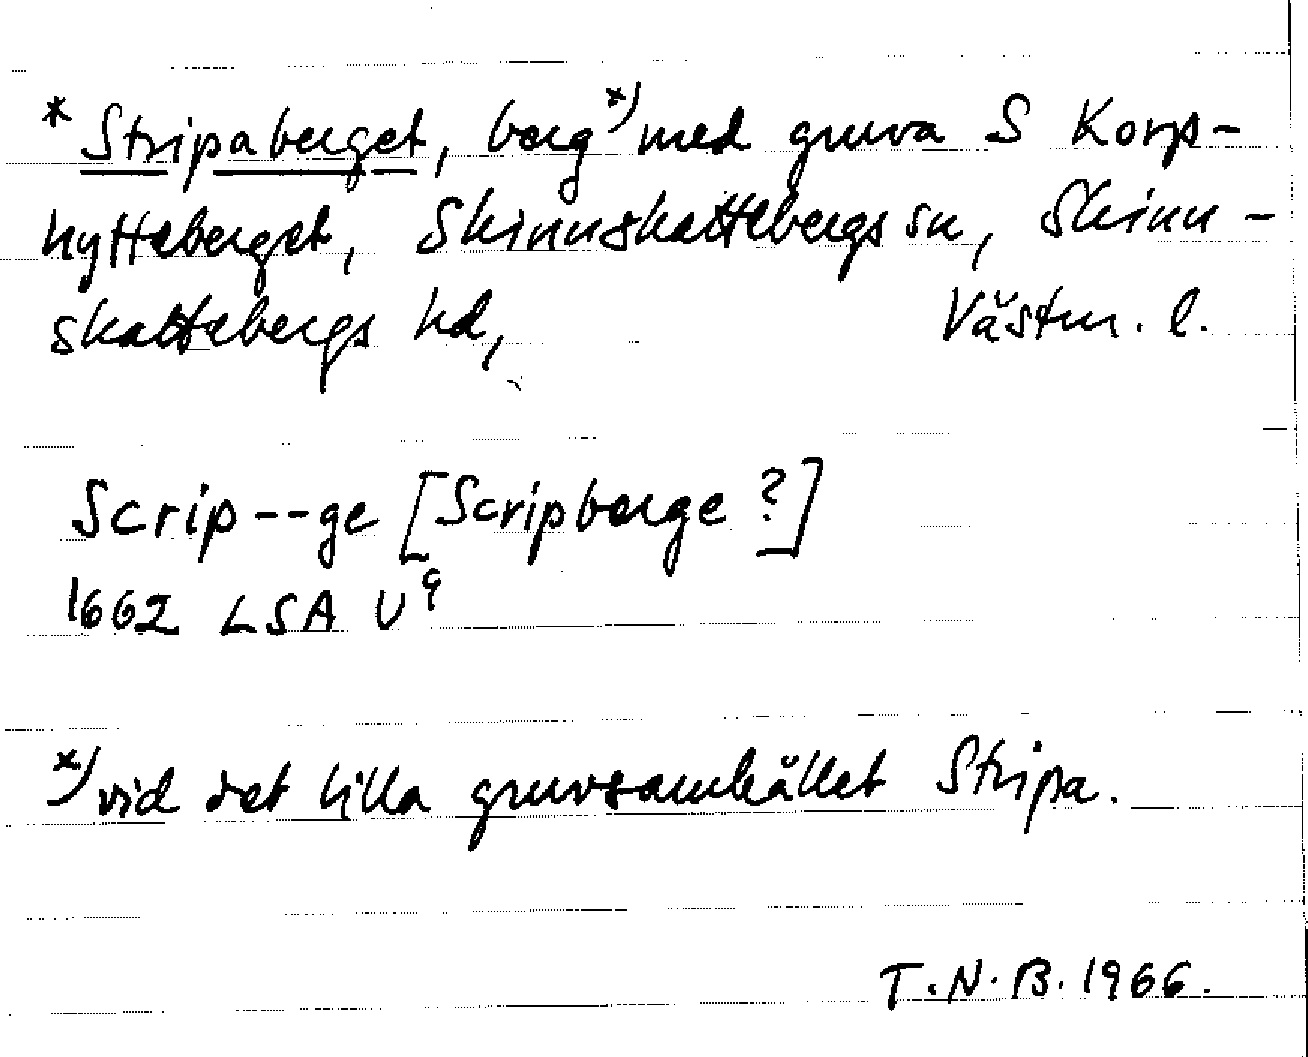 * Stripaberget, berg x) med gruva S Korp-
hytteberget, Skinnskattebergs sn, Skinn-
skattebergs hd, Västm. l.
Scrip--ge [Scripberge ?]
1662 LSA U 9
x) vid det lilla gruvsamhället Stripa.
T.N.B. 1966.